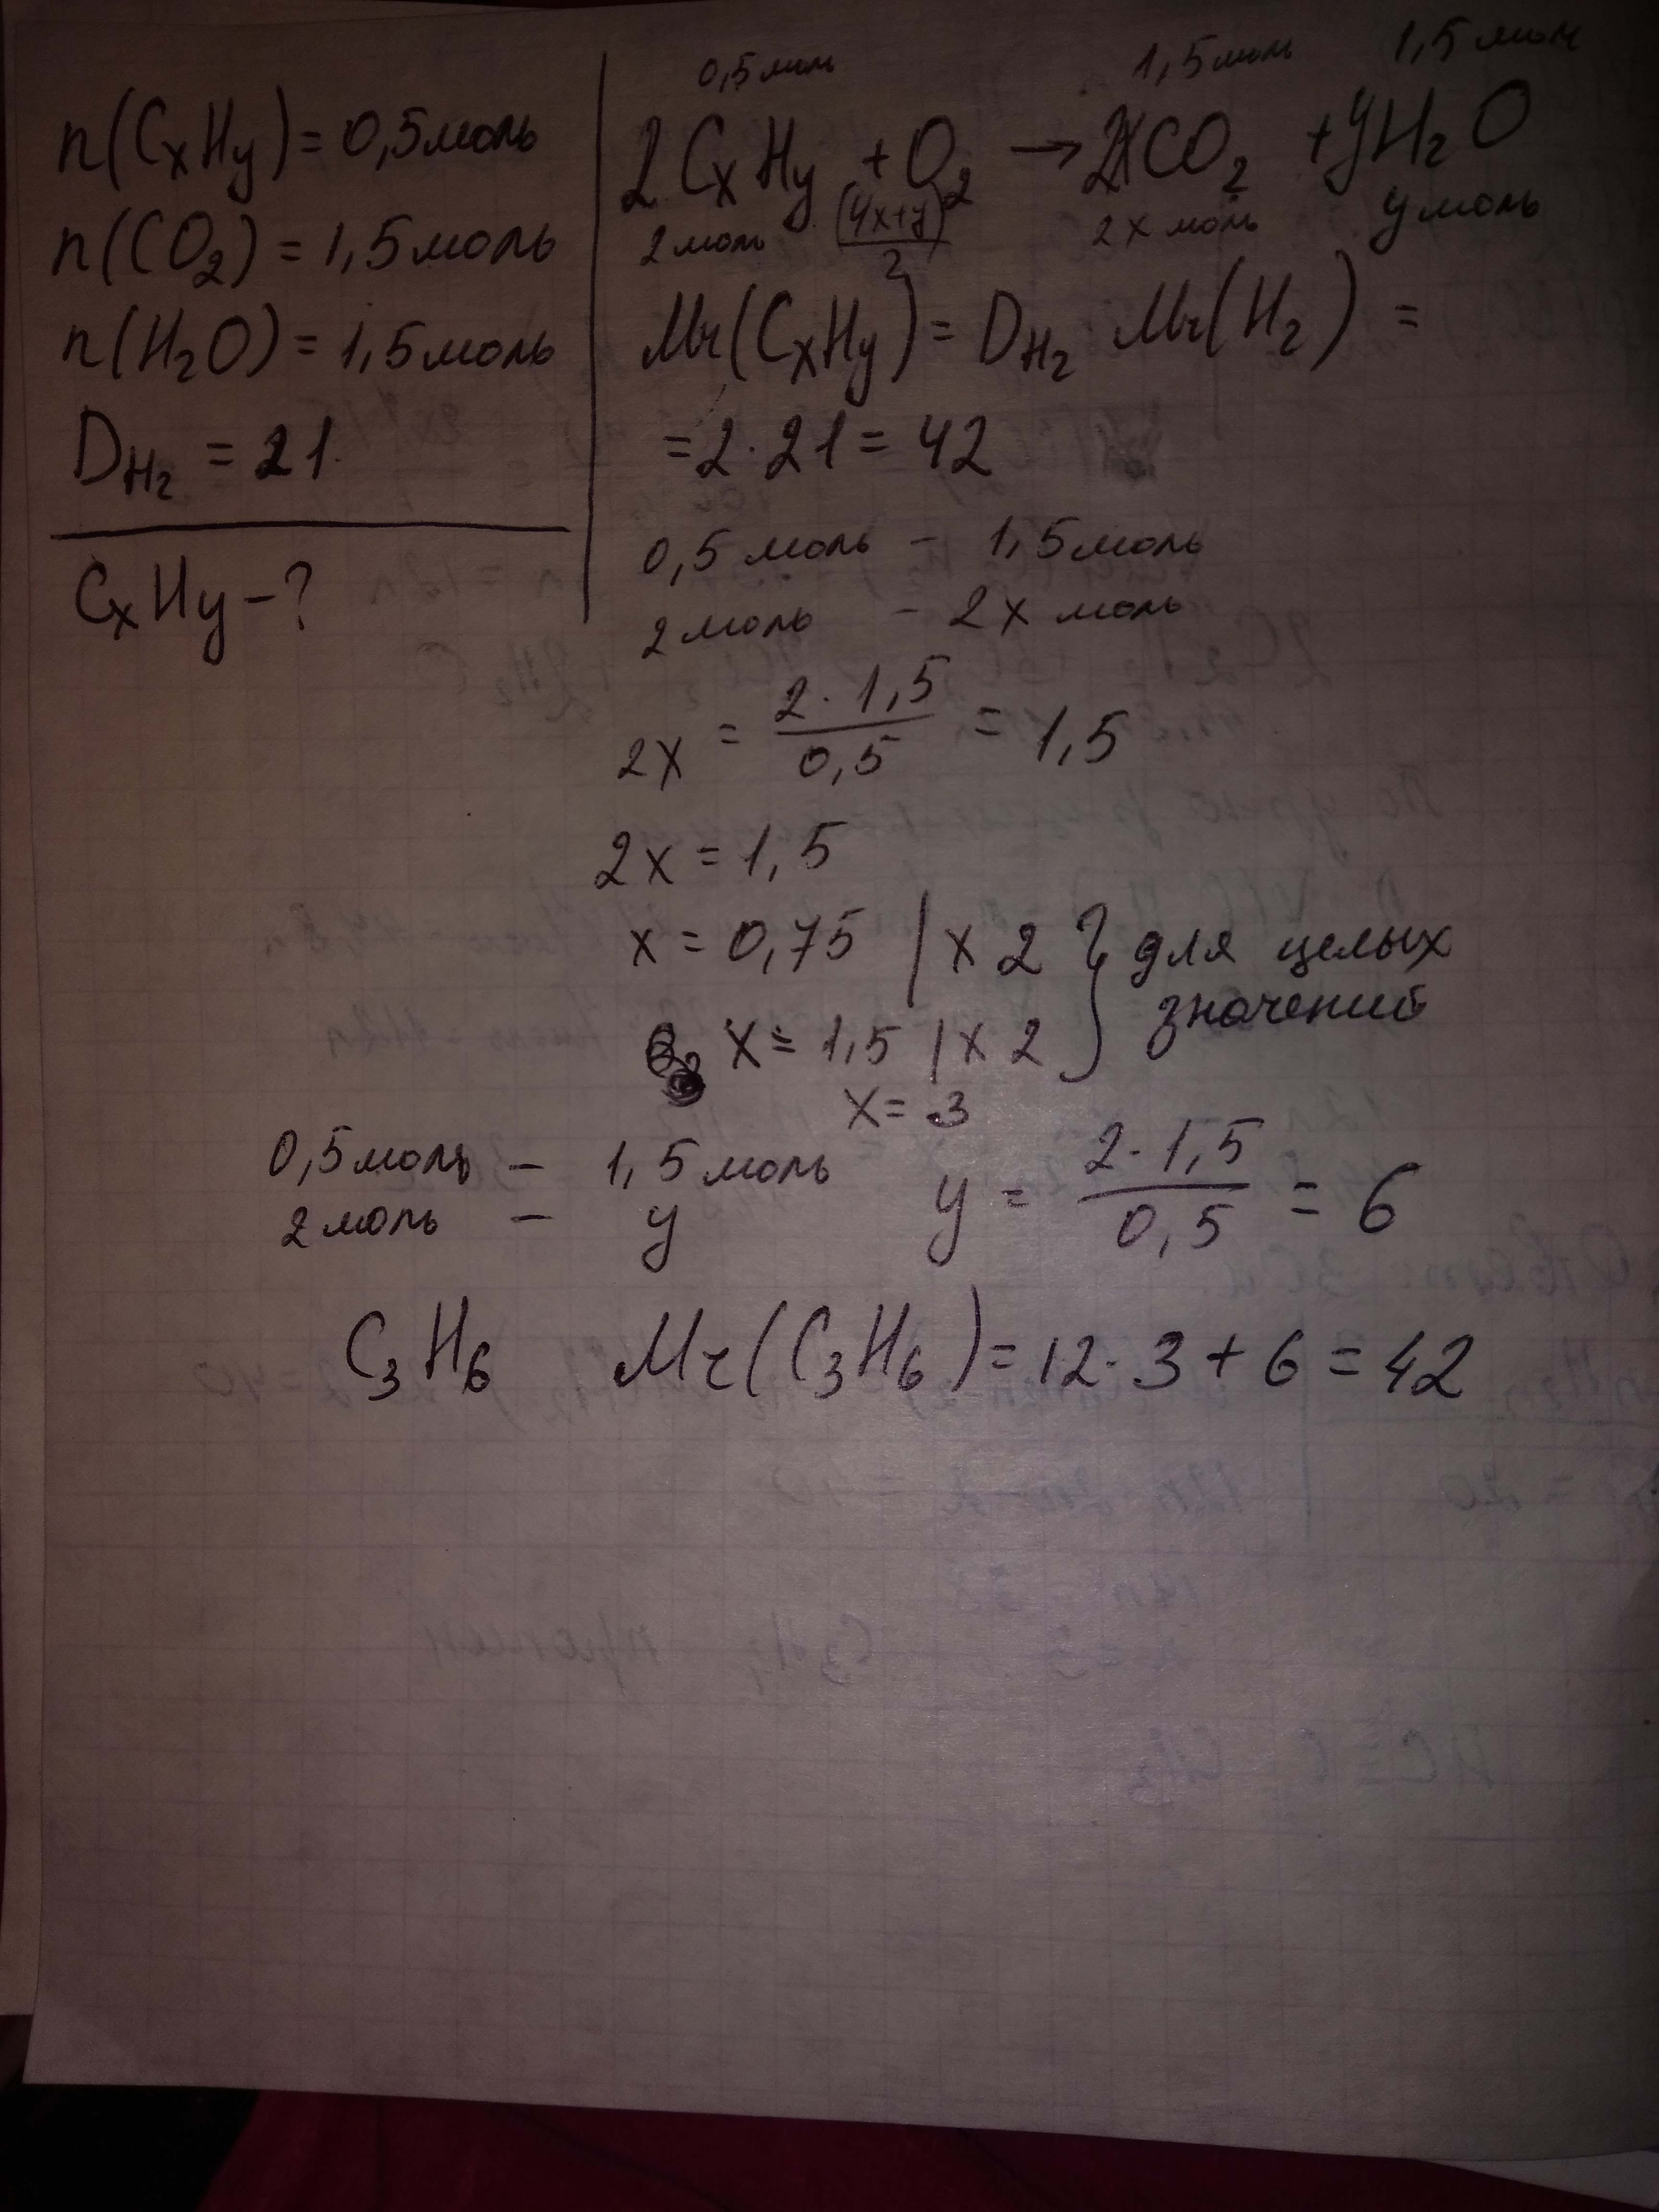 n(CxHy) = 0,5моль
n(CO2) = 1,5моль
n(H2O) = 1,5моль
DH2 = 21
CxHy - ?
0,5моль 1,5моль 1,5моль
2CxHy + O2 → 2XCO2 + yH2O
2моль (4x+y)/2 2x моль y моль
Mr(CxHy) = DH2 Mr(H2) =
= 2 · 21 = 42
0,5 моль - 1,5моль
2моль - 2x моль
2x = 2 · 1,5 / 0,5 = 1,5
2x = 1,5
x = 0,75 | x 2 } для целых
значений
x = 1,5 | x 2
x = 3
0,5моль - 1,5моль
2моль - y
y = 2 · 1,5 / 0,5 = 6
C3H6 Mr(C3H6) = 12 · 3 + 6 = 42